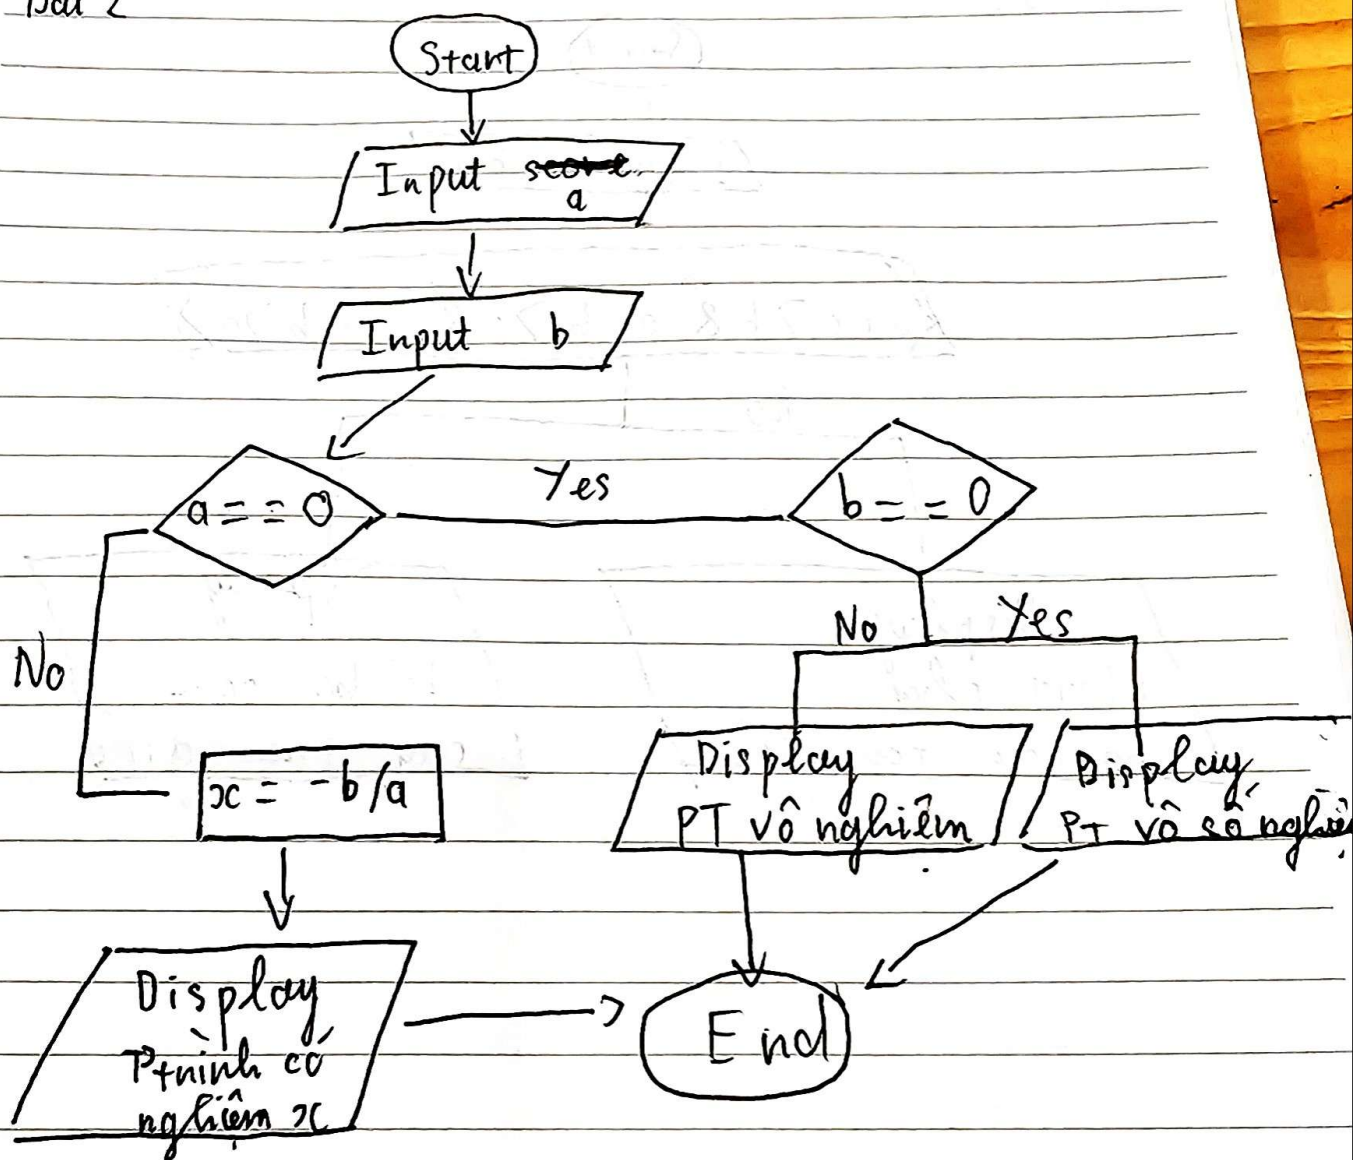 Bài 2
Start
Input score
a
Input b
a == 0
Yes
b == 0
No
Yes
No
x = -b/a
Display
PT vô nghiệm
Display
PT vô số nghiệ
Display
Ptrình có
nghiệm x
End